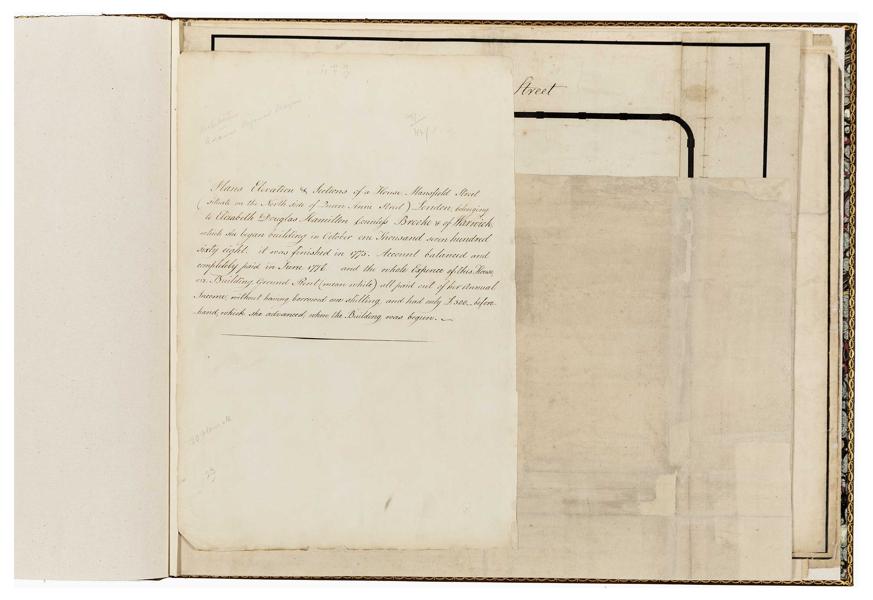 Street
Plans Elevation & Sections of a House Mansfield Street
(situate on the North side of Queen Anne Street) London, belonging
to Elizabeth Douglas Hamilton Countess Brooke & of Warwick,
which she began building in October one thousand seven hundred
sixty eight. it was finished in 1775. Account balanced and
completely paid in June 1776 and the whole Expence of this House,
viz. Building Ground Rent (mean while) all paid out of her annual
Income, without having borrowed one shilling, and had only £300 before
hand, which she advanced, when the Building was begun.